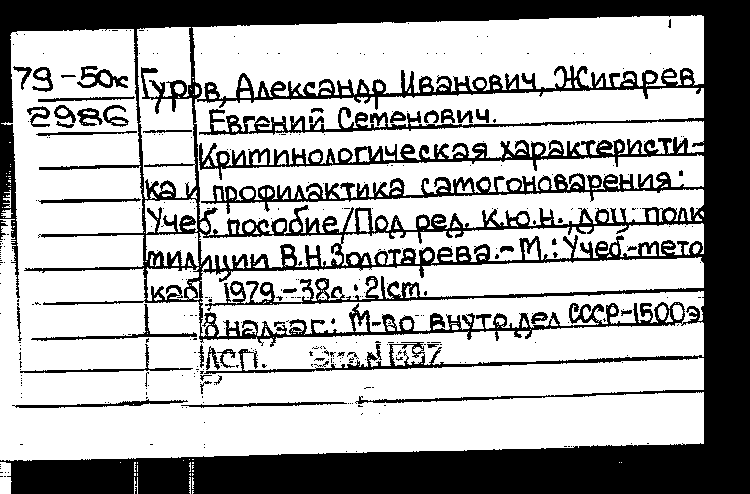 79-50к Гуров, Александр Иванович, Жигарев,
2986 Евгений Семенович.
Криминологическая характеристи-
ка и профилактика самогоноварения:
Учеб. пособие/Под ред. к.ю.н., доц. полк
милиции В.Н.Золотарева.-М.: Учеб.-мето
каб, 1979.-38с.; 21см.
В надзаг.: М-во внутр.дел СССР.-1500э
ДСП. Экз.N 1397